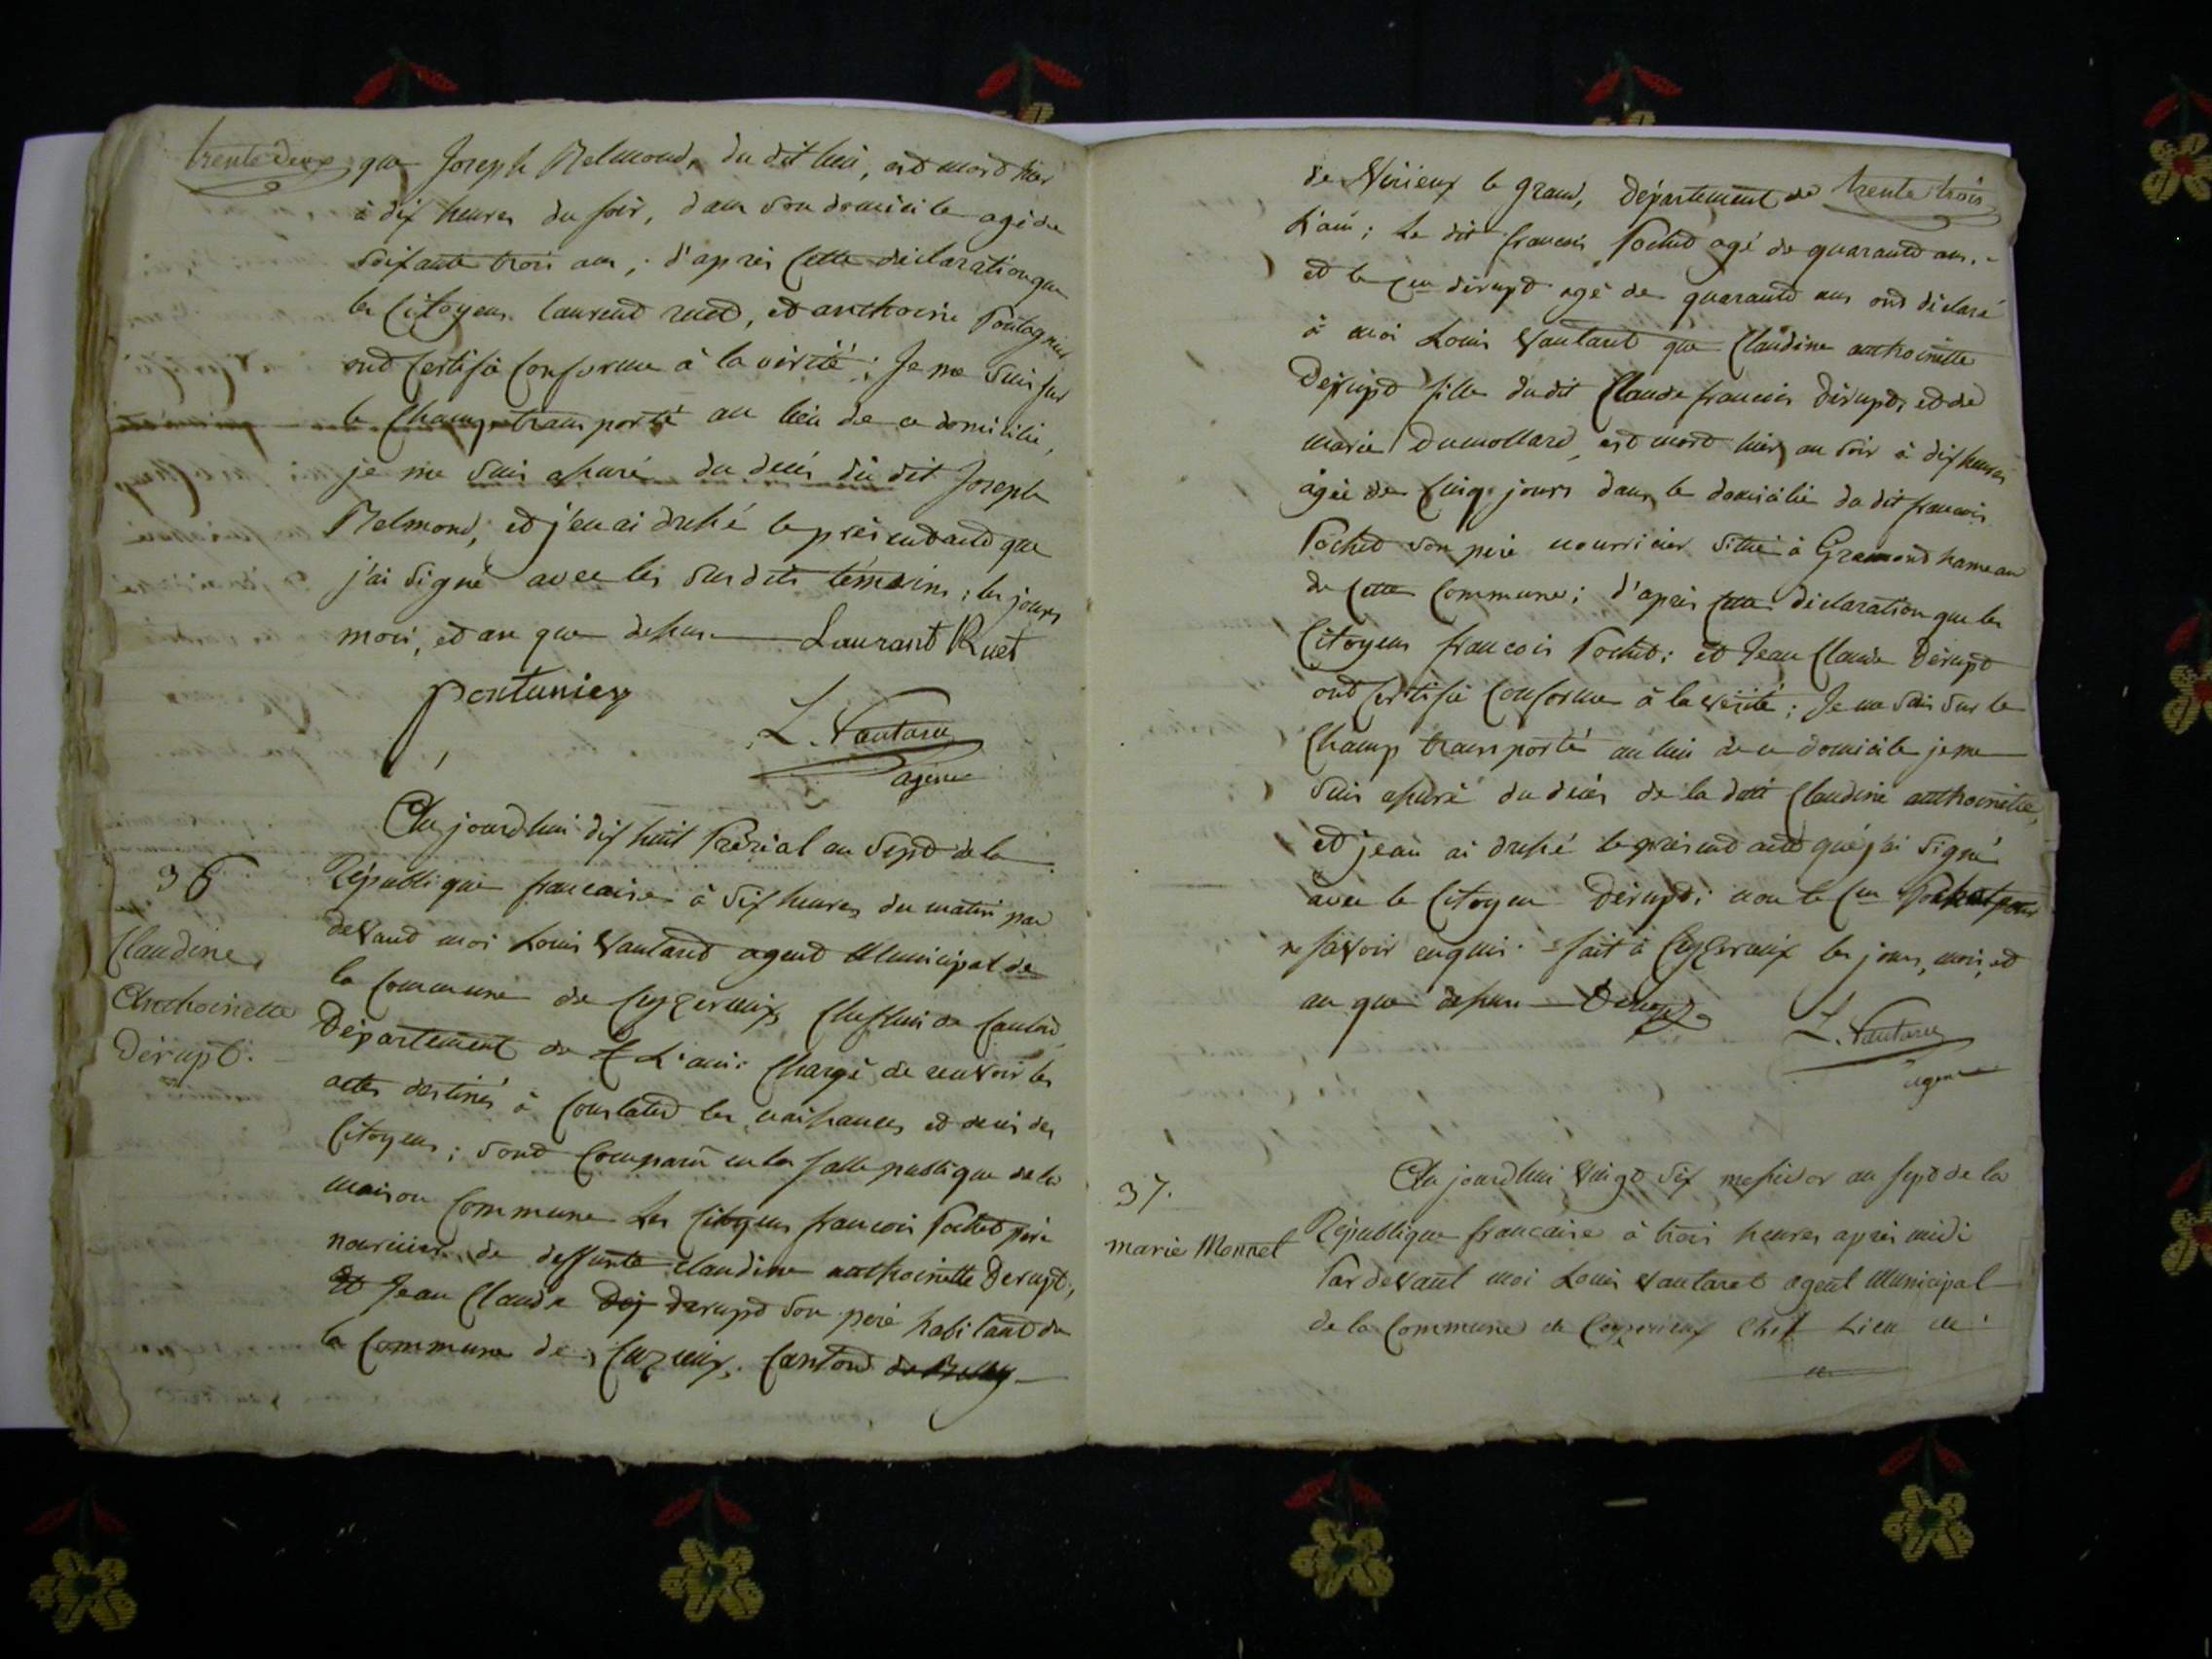 trente deux
que Joseph Belmond, du dit lieu, est mord hier
à dix heures du soir, dans son domicile agé de
soixante trois ans, d'après cette déclaration que
les Citoyens laurend ruet, et anthoine Pontagnier
ont certifié conforme à la vérité; Je me suis sur
le Champ transporté au lieu de ce domicilie,
je me suis assuré du decés du dit Joseph
Belmond, et j'en ai dressé le présend acte que
j'ai signé avec les sus dits témoins, les jours
mois, et an que dessus. Laurant Ruet
pontanier
L. Vantaret
agent
Au jourdhui dix huit Prérial an Sept de la
36
République francaise à six heures du matin par
devand moi Louis Vantaret agend Municipal de
Claudine
Anthoinette
Dérupt.
la Commune de Ceyzerieux, Cheflieu de Canton,
Département de L'ain: Chargé de recevoir les
actes destinés à Constater les naissances et decés des
Citoyens; sont Comparu en la salle publique de la
maison Commune Les Citoyens francois Pochet père
nouricier de deffunte Claudine anthoinette Derupt,
et Jean Claude Dej derupt son père habitant de
la Commune de Cuzieux, Canton de Belley
trente trois
de Virieux le grand, Département de
L'ain; Le dit francois Pochet agé de quarante ans,
et le Cen dérupt agé de quarante ans ont déclaré
à moi Louis Vantaret que Claudine anthoinette
Dérupt fille du dit Claude francois Dérupt, et de
marie Dumollard, est mord hier au soir à dix heures
agée de Cinq jours dans le domicilie du dit francois
Pochet son père nourricier situé à Gramond hameau
de Cette Commune; d'après cette déclaration que les
Citoyens francois Pochet; et Jean Claude Dérupt
ont certifié Conforme à la vérité; Je me suis sur le
Champ transporté au lieu de ce domicile je me
suis assuré du décés de la dite Claudine anthoinette,
et jean ai dressé le présend acte que j'ai signé
avec le Citoyen Dérupt; non le Cen Pochet pour
ne savoir enquis. fait à Ceyzerieux les jours, mois, et
an que dessus Derupt
L. Vantaret
agent
Au jourdhui Vingt six messidor an sept de la
37.
marie Monnet
République francaise à trois heures aprés midi
Pardevant moi Louis Vantaret agent Municipal
de la Commune de Ceyzerieux Chef Lieu de